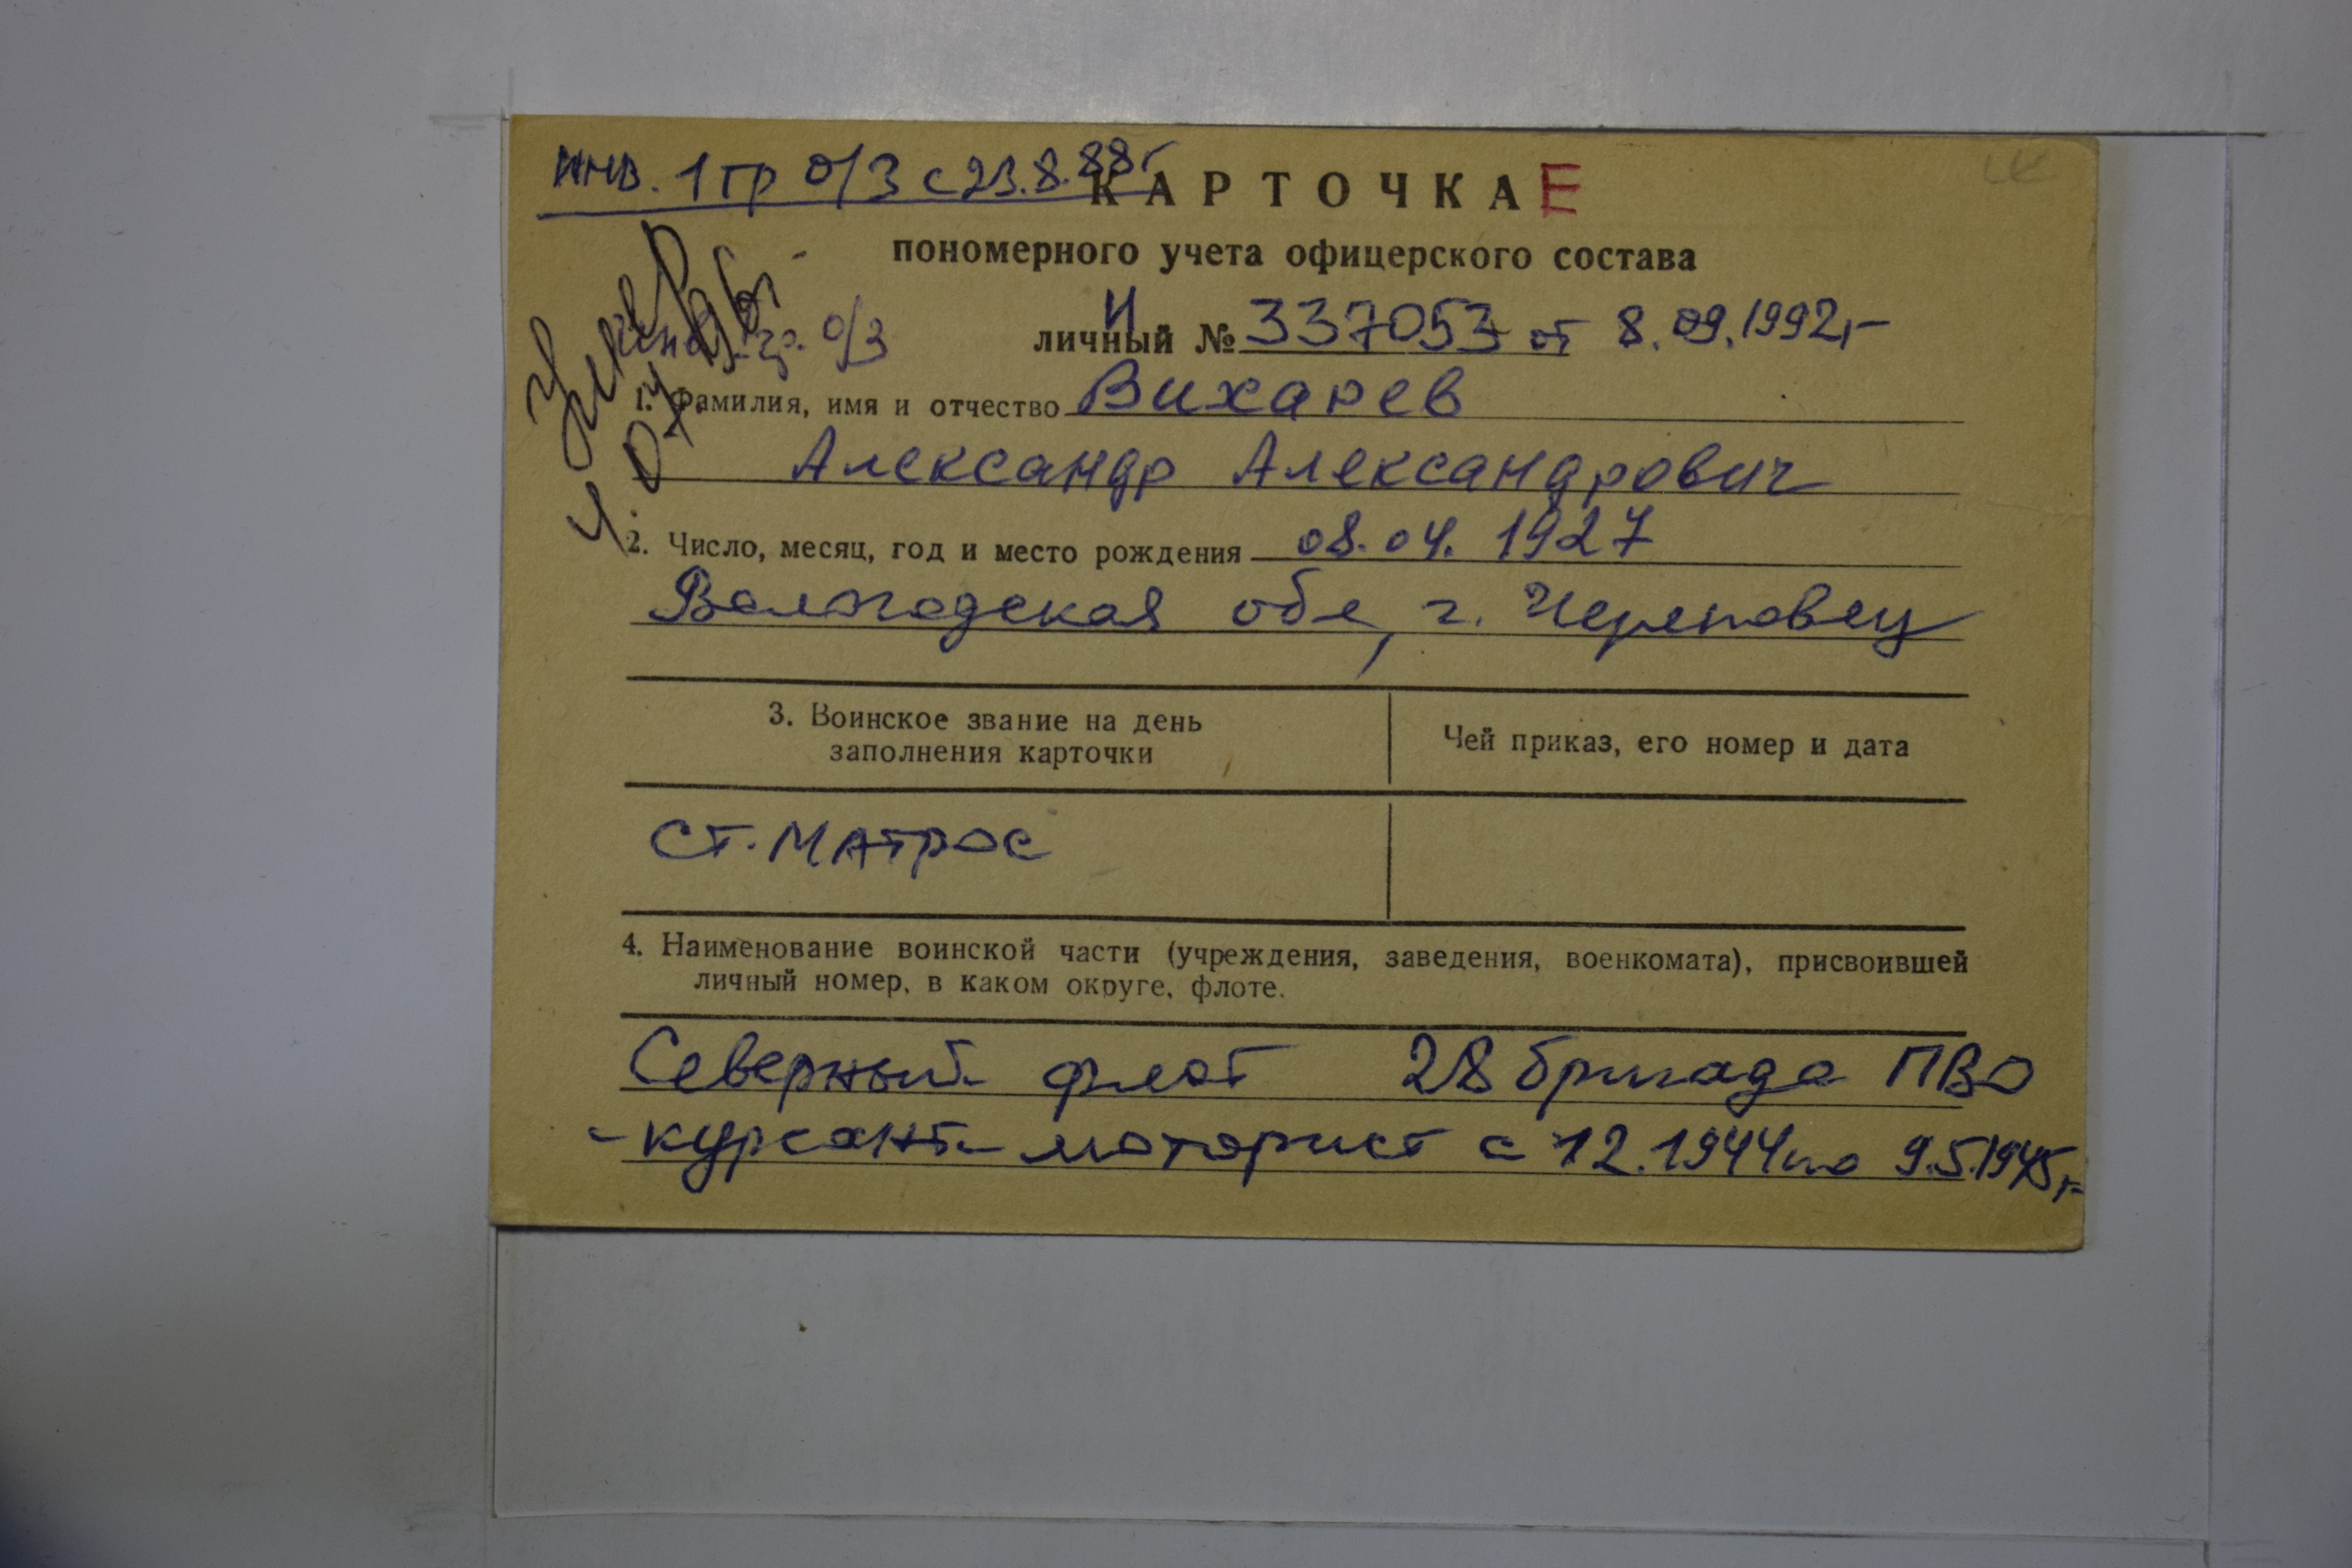 инв. 1 гр о/з с 23.8.88г
КАРТОЧКА Е
пономерного учета офицерского состава
И
личный № 337053 от 8.09.1992г
гр. о/з
1. Фамилия, имя и отчество Вихарев
Александр Александрович
2. Число, месяц, год и место рождения 08.04.1927
Вологодская обл, г. Череповец
3. Воинское звание на день
заполнения карточки
Чей приказ, его номер и дата
ст. матрос
4. Наименование воинской части (учреждения, заведения, военкомата), присвоившей
личный номер, в каком округе, флоте.
Северный флот 28 бригада ПВО
- курсант-моторист с 12.1944 по 9.5.1945г